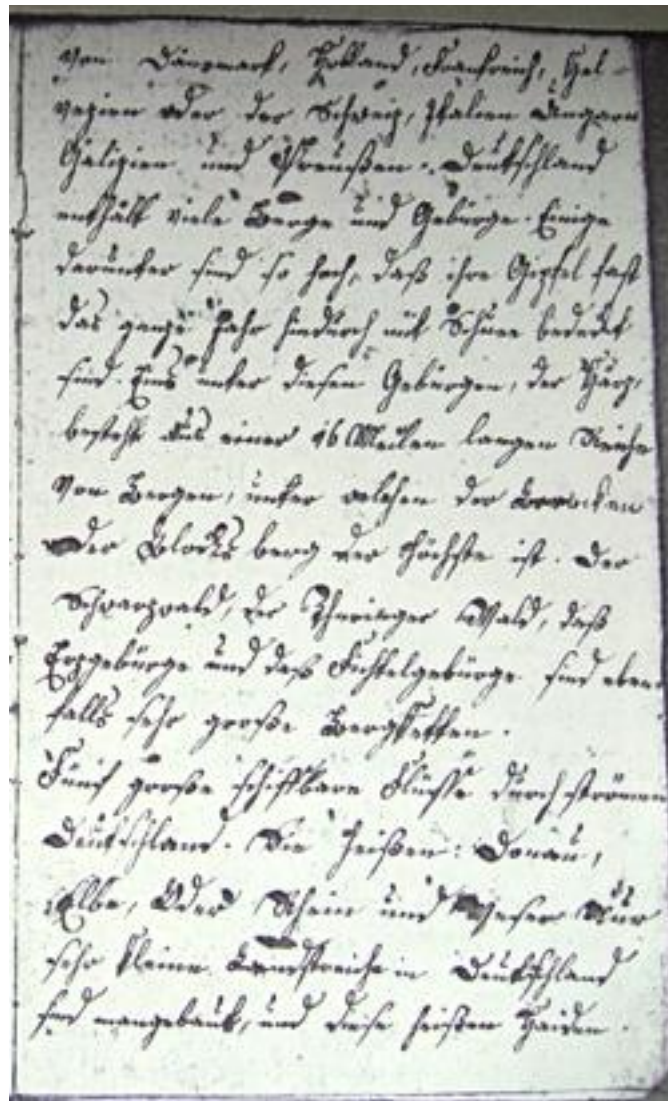 von Dänemark, Holland, Frankreich, Hel-
vezien oder der Schweiz, Italien Ungarn
Galizien und Preußen. Deutschland
enthält viele Berge und Gebürge. Einige
darunter sind so hoch, daß ihre Gipfel fast
das ganze Jahr hindurch mit Schnee bedeckt
sind. Eins unter diesen Gebürgen, der Harz,
besteht aus einer 16 Meilen langen Reihe
von Bergen, unter welchen der Brocken
oder Blocks berg der höchste ist. Der
Schwarzwald, der Thuringer Wald, daß
Erzgebürge und daß Fichtelgebürge sind eben
falls sehr große Bergketten.
Fünf große schiffbare Flüsse durch strömen
Deutschland. Sie heißen: Donau,
Elbe, Oder Rhein und Weser Nur
sehr kleine Landstreiche in Deutschland
sind unangebaut, und diese heißen Haiden.